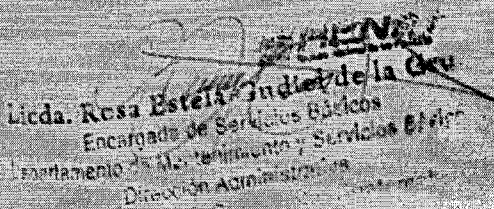 Licda. Rosa Estela Gudiel de la Cru
Encargada de Servicios Básicos
Departamento de Mantenimiento y Servicios Básicos
Dirección Administrativa